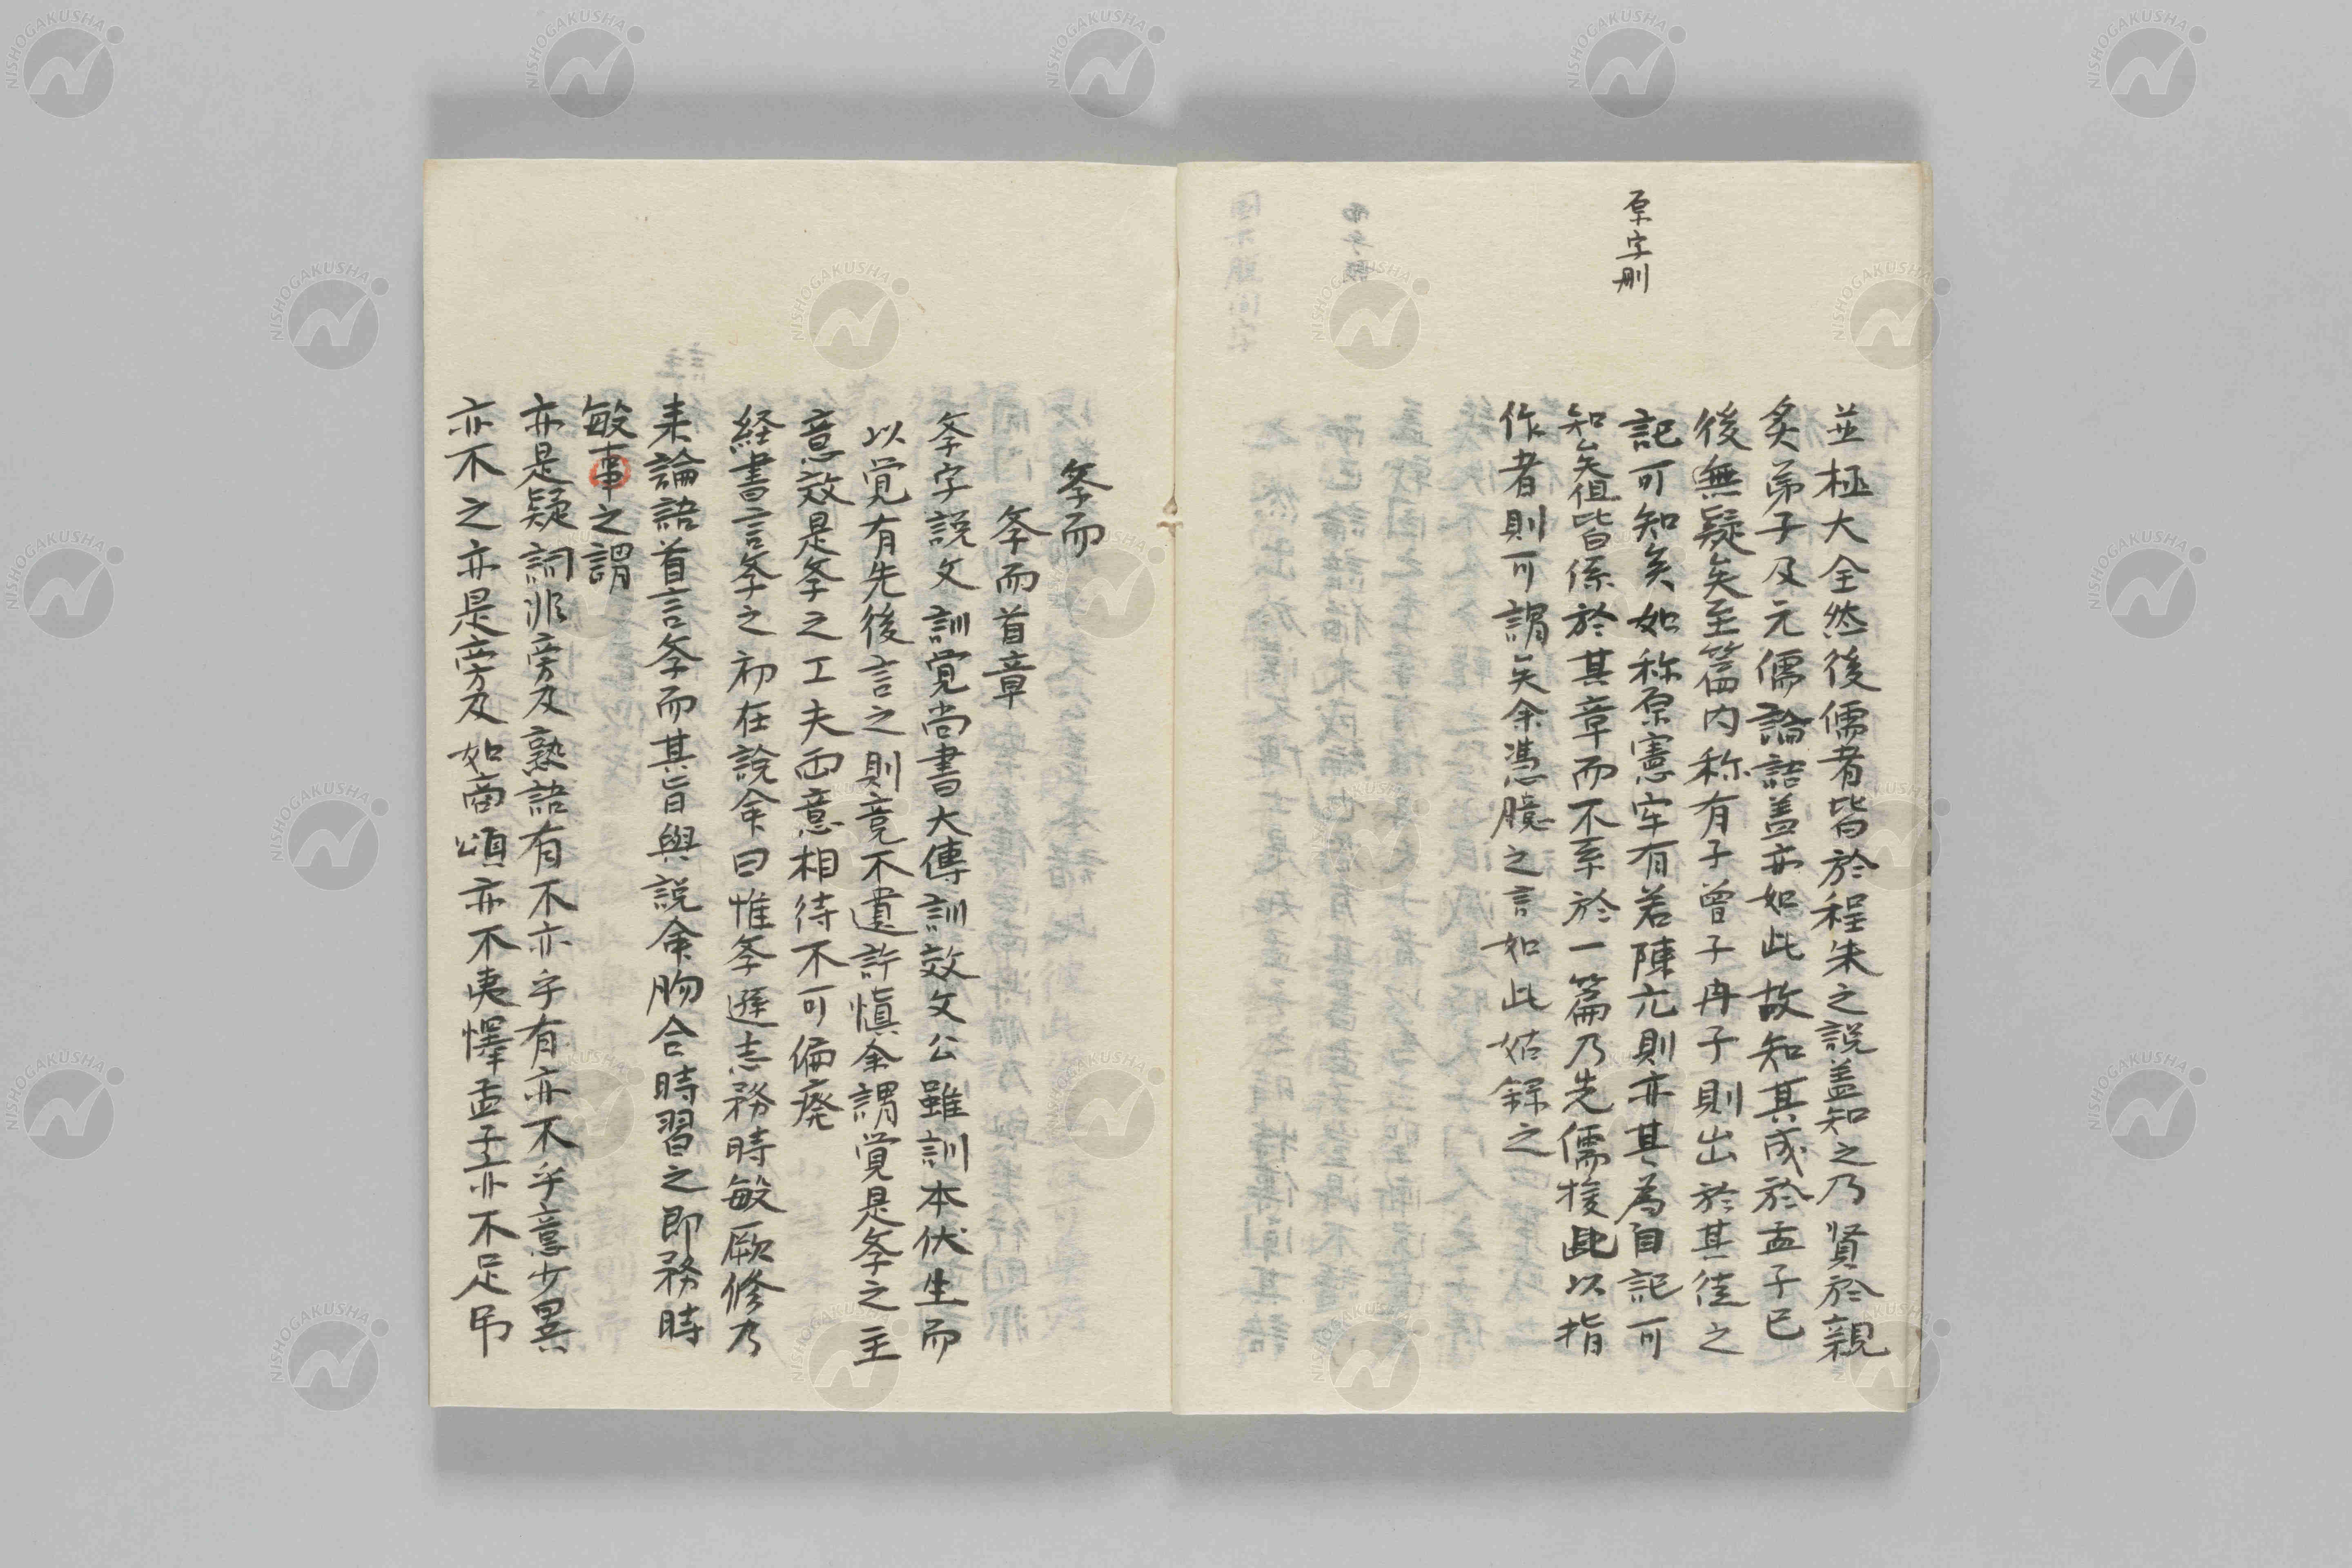 原字刪
並極大全然後儒者皆於程朱之説盖知之乃賢於親
炙弟子及元儒論語盖亦如此故知其成於孟子已
後無疑矣至篇内称有子曽子冉子則出於其徒之
記可知矣如称原憲牢有若陳亢則亦其為自記可
知矣徂皆係於其章而不系於一篇乃先儒援此以指
作者則可謂矣余憑臆之言如此姑録之
斈而
斈而首章
斈字説文訓覚尚書大傳訓效文公雖訓本伏生而
以覚有先後言之則竟不遺許愼余謂覚是斈之主
意效是斈之工夫両意相待不可偏廃
経書言斈之初在說命曰惟斈遜志務時敏厥修乃
来論語首言斈而其旨與説命脗合時習之即務時
敏事之謂
亦是疑詞非旁及熟語有不亦乎有亦不乎意少異
亦不之亦是旁及如商頌亦不夷懌孟子亦不足弔
NISHOGAKUSHA